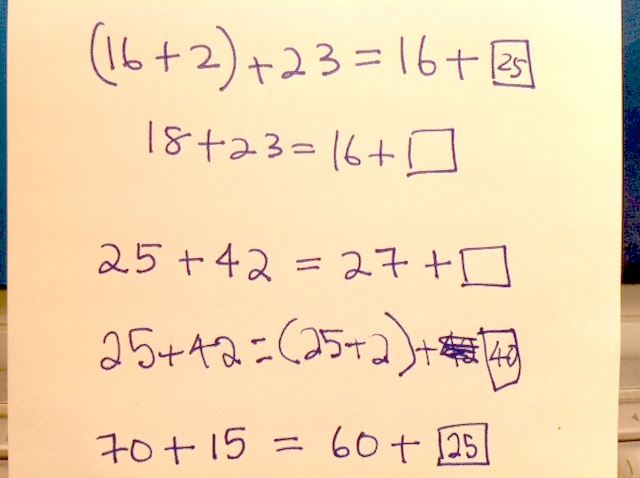 (16+2)+23=16+25
18+23=16+□
25+42=27+□
25+42=(25+2)+40
70+15=60+25